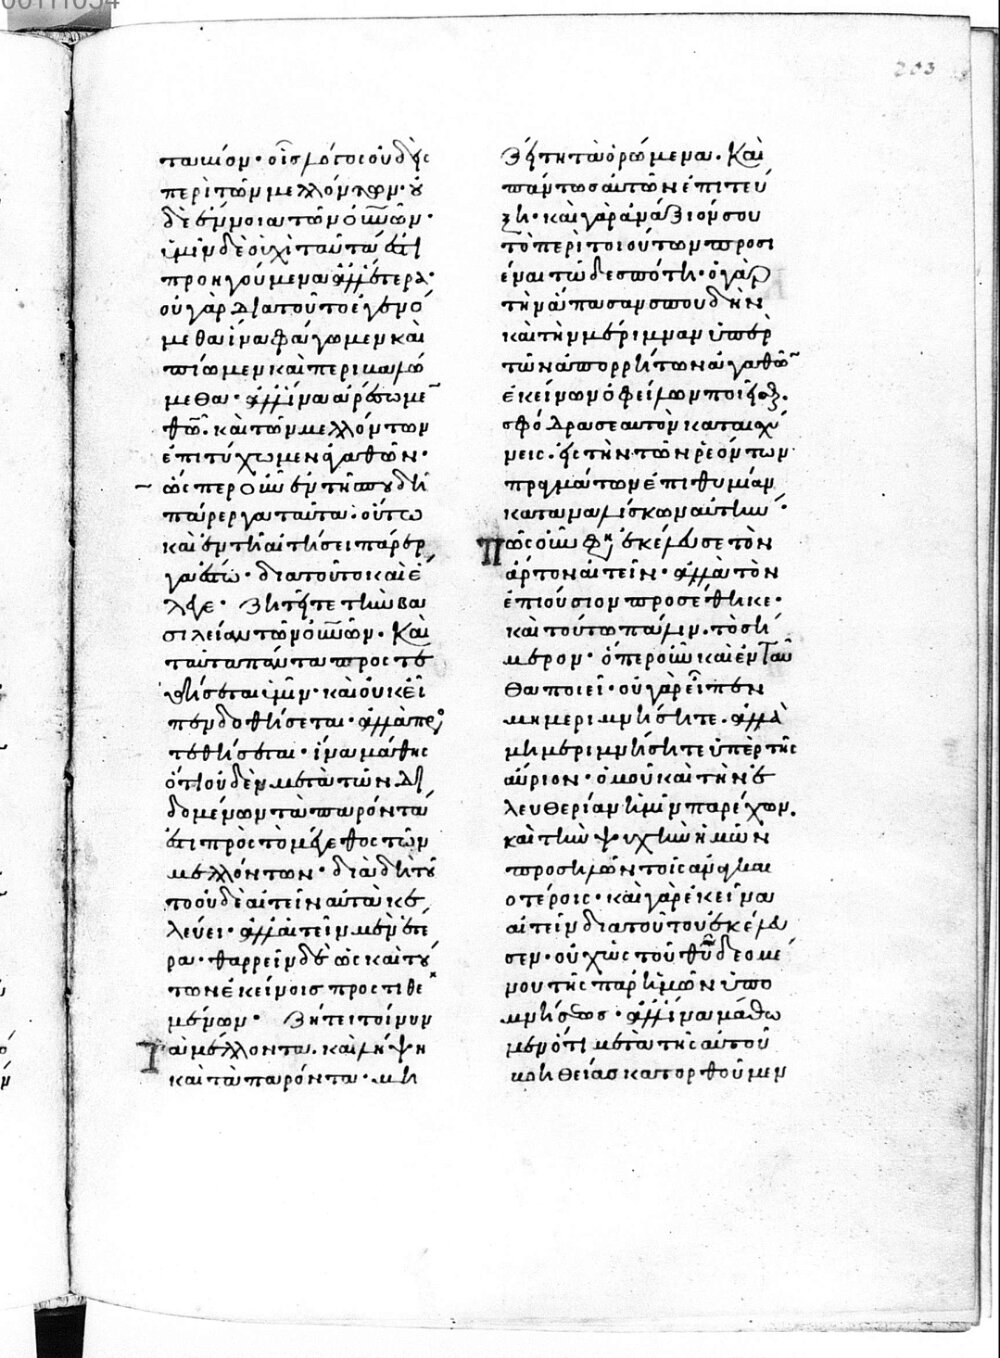 203
ταμιον· οἷς λόγος οὐδεὶς
περὶ τῶν μελλόντων· οὐ
δὲ ἔννοια τῶν οὐνῶν·
ὑμῖν δὲ οὐχὶ ταῦτά ἐστι
προηγούμενα ἀλλ' ἕτερα·
οὐ γὰρ διατοῦτο ἐγενό
μεθα ἵνα φάγωμεν καὶ
πίωμεν καὶ περιβαλώ
μεθα· ἀλλ' ἵνα ἀρέσωμεν
θῶ· καὶ τῶν μελλόντων
ἐπιτύχωμεν ἀγαθῶν·
ὥσπερ οὖν ἐν τῆ σπουδῆ
πάρεργα ταῦτα· οὕτω
καὶ ἐν τῆ αἰτήσει πάρερ
γα ἔστω· διατοῦτο καὶ ἔ
λεγε· Ζητεῖτε τὴν βα
σιλείαν τῶν οὐνῶν· Καὶ
ταῦτα πάντα προστε
θήσεται ὑμῖν· καὶ οὐκ εἶ
πεν δοθήσεται· ἀλλὰ προσ
τεθήσεται· ἵνα μάθης
ὅτι οὐδὲν μέγα τῶν δι
δομένων τὰ παρόντα
ἐστι πρὸς τὸ μέγεθος τῶν
μελλόντων· διὰ δὴ τοῦ
το οὐδὲ αἰτεῖν αὐτὰ κε
λεύει· ἀλλ' αἰτεῖν μὲν ἕτε
ρα· θαρρεῖν δὲ ὡς καὶ τού
των ἐκείνοις προστιθε
μένων· Ζήτει τοίνυν
τὰ μέλλοντα· καὶ λήψη
καὶ τὰ παρόντα· μὴ
ζήτει τὰ ὁρώμενα· Καὶ
πάντως αὐτῶν ἐπιτεύ
ξη· καὶ γὰρ ἀνάξιόν σου
τὸ περὶ τοιούτων προσι
έναι τῶ δεσπότη· ὁ γὰρ
τὴν ἅπασαν σπουδὴν
καὶ τὴν μέριμναν ὑπὲρ
τῶν ἀπορρήτων ἀγαθῶν
ἐκείνων ὀφείλων ποιεῖσθαι·
σφόδρα σεαυτὸν καταισχύ
νεις· εἰς τὴν τῶν ῥεόντων
πραγμάτων ἐπιθυμίαν
καταναλίσκων αὐτήν·
Πῶς οὖν φησὶ ἐκέλευσε τὸν
ἄρτον αἰτεῖν· ἀλλὰ τὸν
ἐπιούσιον προσέθηκε·
καὶ τούτω πάλιν· τὸ σή
μερον· ὅπερ οὖν καὶ ἐνταῦ
θα ποιεῖ· οὐ γὰρ εἶπεν
μὴ μεριμνήσητε· ἀλλὰ
μὴ μεριμνήσητε ὑπὲρ τῆς
αὔριον· ὁμοῦ καὶ τὴν ἐ
λευθερίαν ἡμῖν παρέχων·
καὶ τὴν ψυχὴν ἡμῶν
προσηλῶν τοῖς ἀναγκαι
οτέροις· καὶ γὰρ ἐκεῖνα
αἰτεῖν διατοῦτο ἐκέλευ
σεν· οὐχ ὡς τοῦ θῦ δεομέ
νου τῆς παρ' ἡμῶν ὑπο
μνήσεως· ἀλλ' ἵνα μάθω
μεν ὅτι μετὰ τῆς αὐτοῦ
βοηθείας κατορθοῦμεν